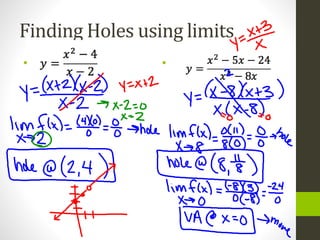 Finding Holes using limits
y = (x+3)/x
• y = (x² − 4)/(x − 2)
y = ((x+2)(x-2))/(x-2)
y = x+2
→ x-2=0
x=2
lim x→2 f(x) = ((4)(0))/0 = 0/0 → hole
hole @ (2,4)
• y = (x² − 5x − 24)/(x² − 8x)
y = ((x-8)(x+3))/(x(x-8))
=0 =0
lim x→8 f(x) = (0(11))/(8(0)) = 0/0 → hole
hole @ (8, 11/8)
lim x→0 f(x) = ((-8)(3))/(0(-8)) = -24/0
VA @ x=0